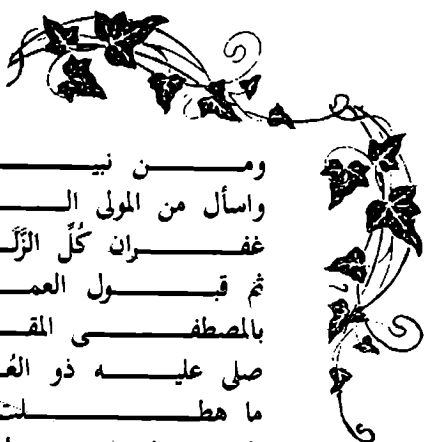 ومن نبيـ
واسأل من المولى الـ
غفران كُلِّ الزَّلَـ
ثم قبول العمـ
بالمصطفى المقـ
صلى عليه ذو العُـ
ما هطلت